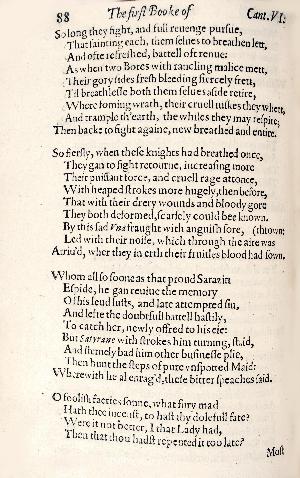 88 The first Booke of Cant. VI.
So long they fight, and full reuenge pursue,
That fainting each, them selues to breathen lett,
And ofte refreshed, battell oft renue:
As when two Bores with rancling malice mett,
Their gory sides fresh bleeding fiercely frett,
Til breathlesse both them selues aside retire,
Where foming wrath, their cruell tuskes they whett,
And trample th'earth, the whiles they may respire;
Then backe to fight againe, new breathed and entire.
So fiersly, when these knights had breathed once,
They gan to fight retourne, increasing more
Their puissant force, and cruell rage attonce,
With heaped strokes more hugely, then before,
That with their drery wounds and bloody gore
They both deformed, scarsely could bee known.
By this sad Vna fraught with anguish sore,
Led with their noise, which through the aire was (thrown:
Arriu'd, wher they in erth their fruitles blood had sown.
Whom all so soone as that proud Sarazin
Espide, he gan reuiue the memory
Of his leud lusts, and late attempted sin,
And lefte the doubtfull battell hastily,
To catch her, newly offred to his eie:
But Satyrane with strokes him turning, staid,
And sternely bad him other businesse plie,
Then hunt the steps of pure vnspotted Maid:
Wherewith he al enrag'd, these bitter speaches said.
O foolish faeries sonne, what fury mad
Hath thee incenst, to hast thy dolefull fate?
Were it not better, I that Lady had,
Then that thou hadst repented it too late?
Most